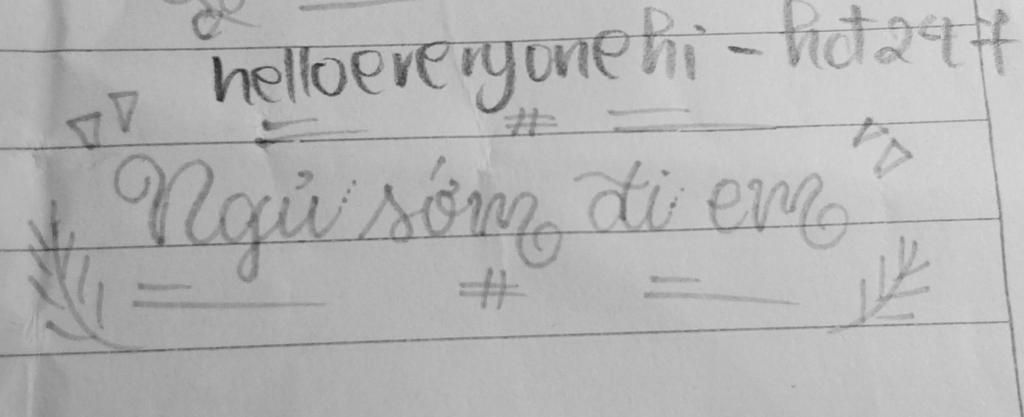 helloeveryonehi - hdt24ff
= # =
Ngủ sớm đi em
= # =